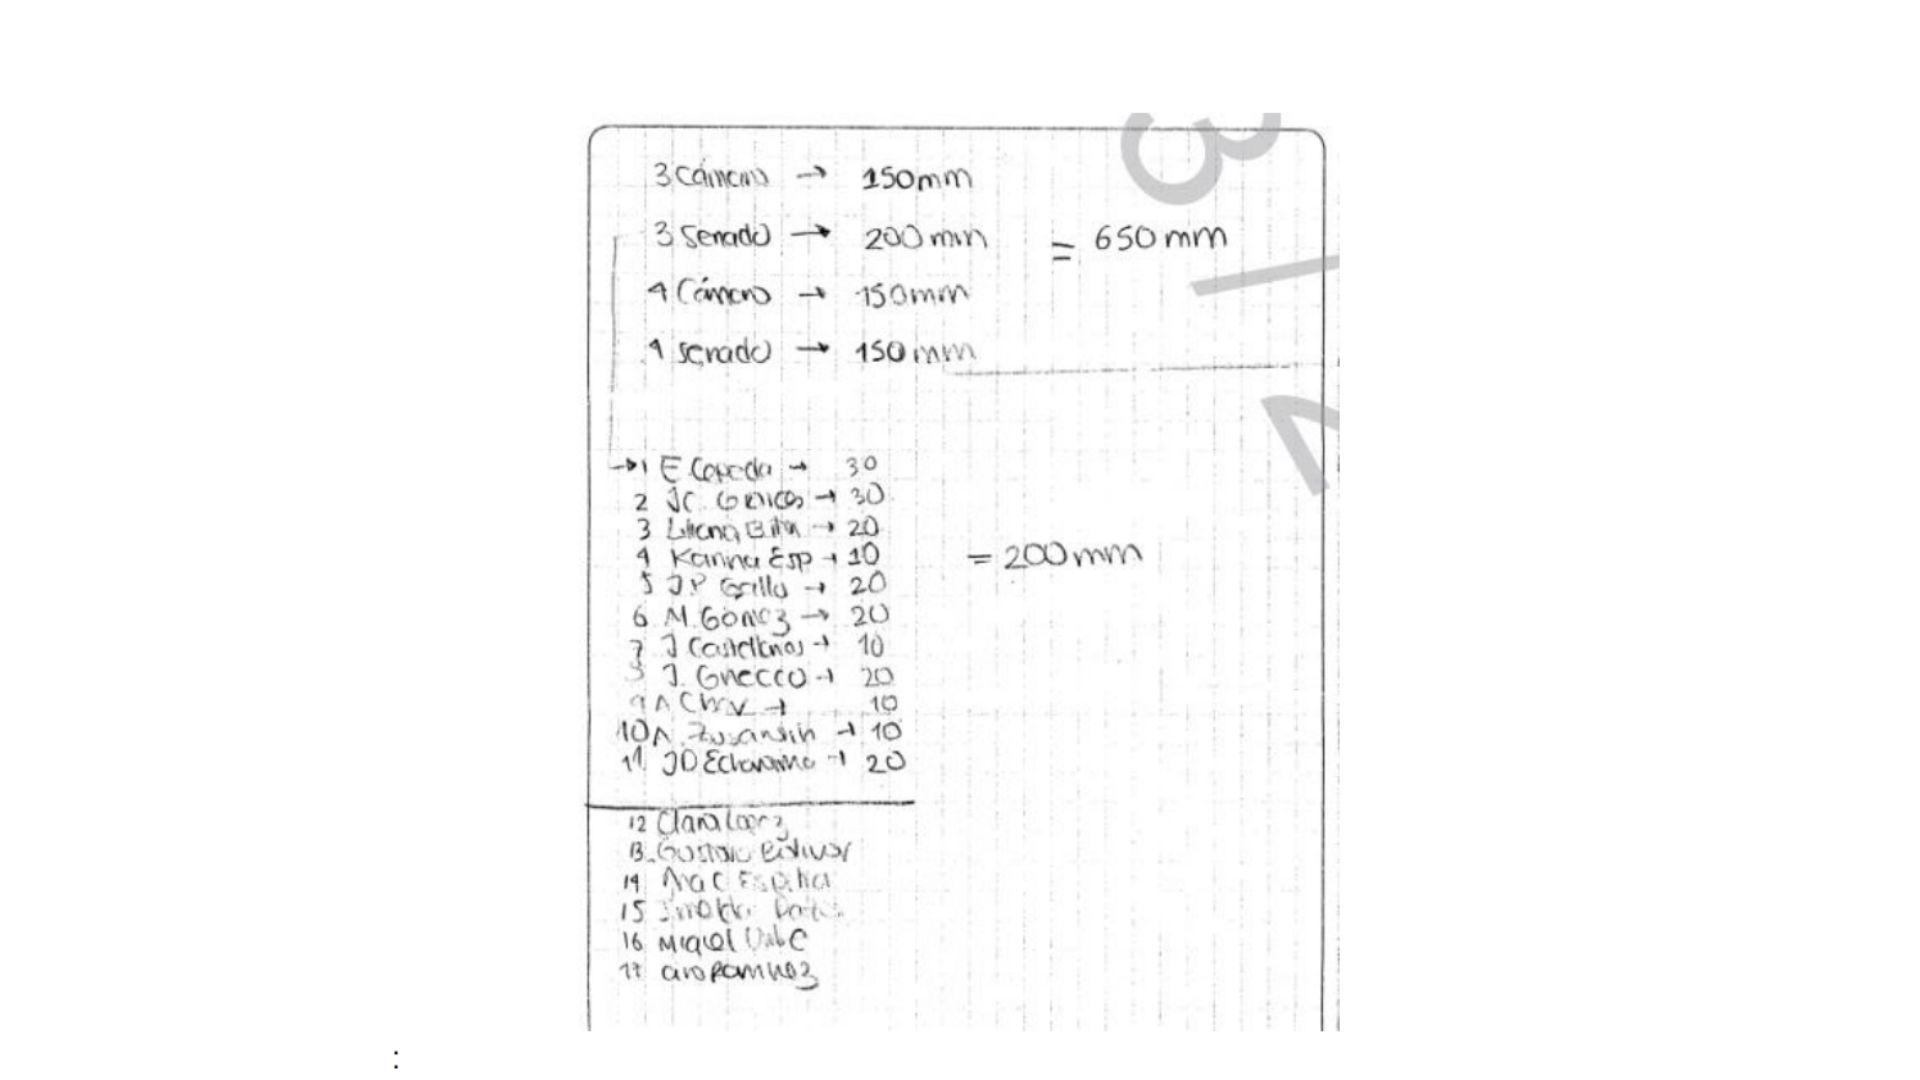 3 Cámara → 150mm
3 Senado → 200mm = 650mm
4 Cámara → 150mm
4 senado → 150mm
→ 1 E. Cepeda → 30
2 JC. → 30
3 Liliana Bita → 20
4 Karina Esp → 10 = 200mm
5 J.P Gallo → 20
6 M. Gómez → 20
7 J Castellanos → 10
8 J. Gnecco → 20
9 A Chav → 10
10 A. → 10
11. JD Echavarria → 20
12 Clara Lopez
13. Gustavo Bolivar
14 Ana C Espitia
15
16 Miguel Urib C
17 ciro Ramirez